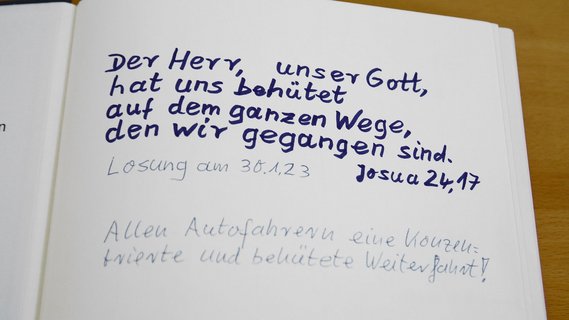 Der Herr, unser Gott,
hat uns behütet
auf dem ganzen Wege,
den wir gegangen sind.
Losung am 30.1.23 Josua 24,17
Allen Autofahrern eine Konzen=
trierte und behütete Weiterfahrt!
n